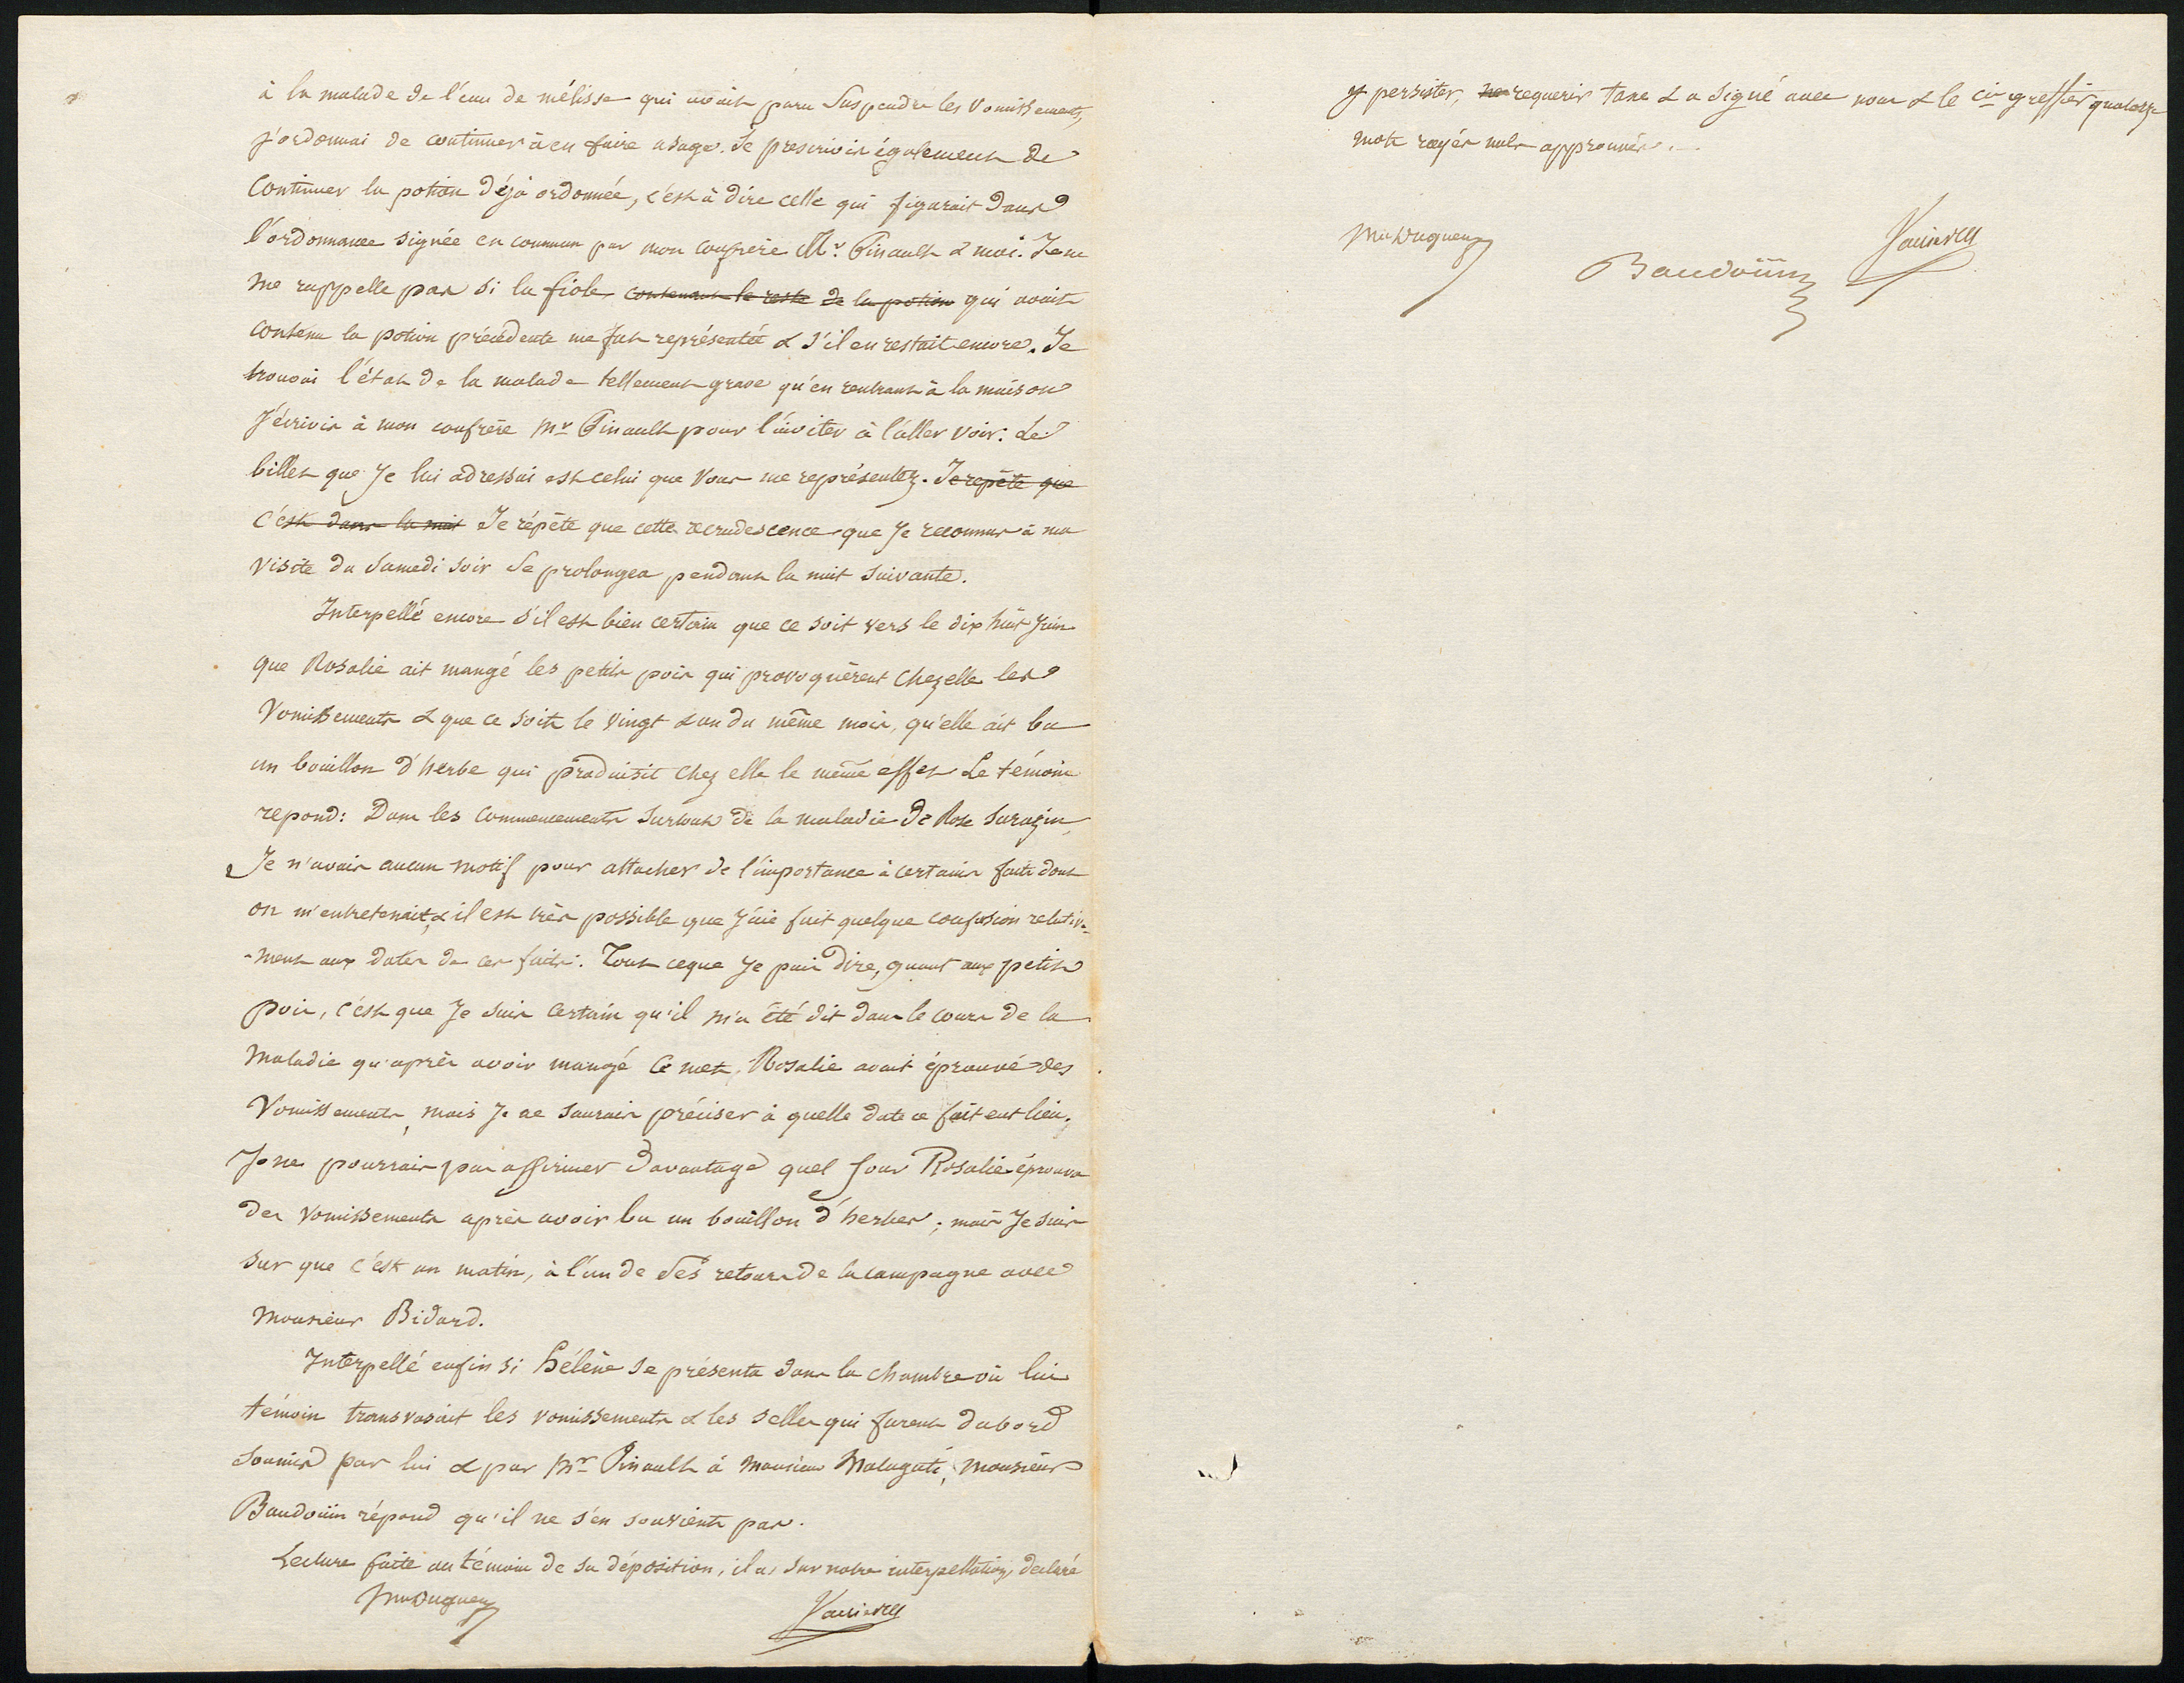 à la malade de l'eau de mélisse qui avait paru suspendre les vomissements,
j'ordonnai de continuer à en faire usage. Je prescrivis également de
continuer la potion déjà ordonnée, c'est à dire celle qui figurait dans
l'ordonnance signée en commun par mon confrère Mr. Pinault & moi. Je ne
me rappelle pas si la fiole contenant le reste de la potion qui avait
contenu la potion précédente me fut représentée & s'il en restait encore. Je
trouvai l'état de la malade tellement grave qu'en rentrant à la maison
j'écrivis à mon confrère Mr Pinault pour l'inviter à l'aller voir. Le
billet que je lui adressai est celui que vous me représentez. Je répète que
c'est dans la nuit Je répète que cette recrudescence que je reconnus à ma
visite du samedi soir se prolongea pendant la nuit suivante.
Interpellé encore s'il est bien certain que ce soit vers le dix huit juin
que Rosalie ait mangé les petits pois qui provoquèrent chez elle les
vomissements & que ce soit le vingt & un du même mois, qu'elle ait bu
un bouillon d'herbe qui produisit chez elle le même effet Le témoin
repond: Dans les commencements surtout de la maladie de Rose Sarazin,
Je n'avais aucun motif pour attacher de l'importance à certains faits dont
on m'entretenait, & il est très possible que j'aie fait quelque confusion relative-
-ment aux dates de ces faits. Tout ceque je puis dire, quant aux petits
pois, c'est que je suis certain qu'il m'a été dit dans le cours de la
maladie qu'après avoir mangé ce mets, Rosalie avait éprouvé des
vomissements, mais je ne saurais préciser à quelle date ce fait eut lieu;
Je ne pourrais pas affirmer davantage quel jour Rosalie éprouva
des vomissements après avoir bu un bouillon d'herbes; mais je suis
sur que c'est un matin, à l'un de ses retours de la campagne avec
monsieur Bidard.
Interpellé enfin si hélène se présenta dans la chambre où lui
témoin transvasait les vomissements & les selles qui furent dabord
soumis par lui & par Mr Pinault à monsieur Malaguti, monsieur
Baudouin répond qu'il ne s'en souvient pas.
Lecture faite au témoin de sa déposition, il a, sur notre interpellation, déclaré
y persister, ne requerir taxe & a signé avec nous & le cis greffier quatorze
mots rayés nuls approuvés.
Baudoüin